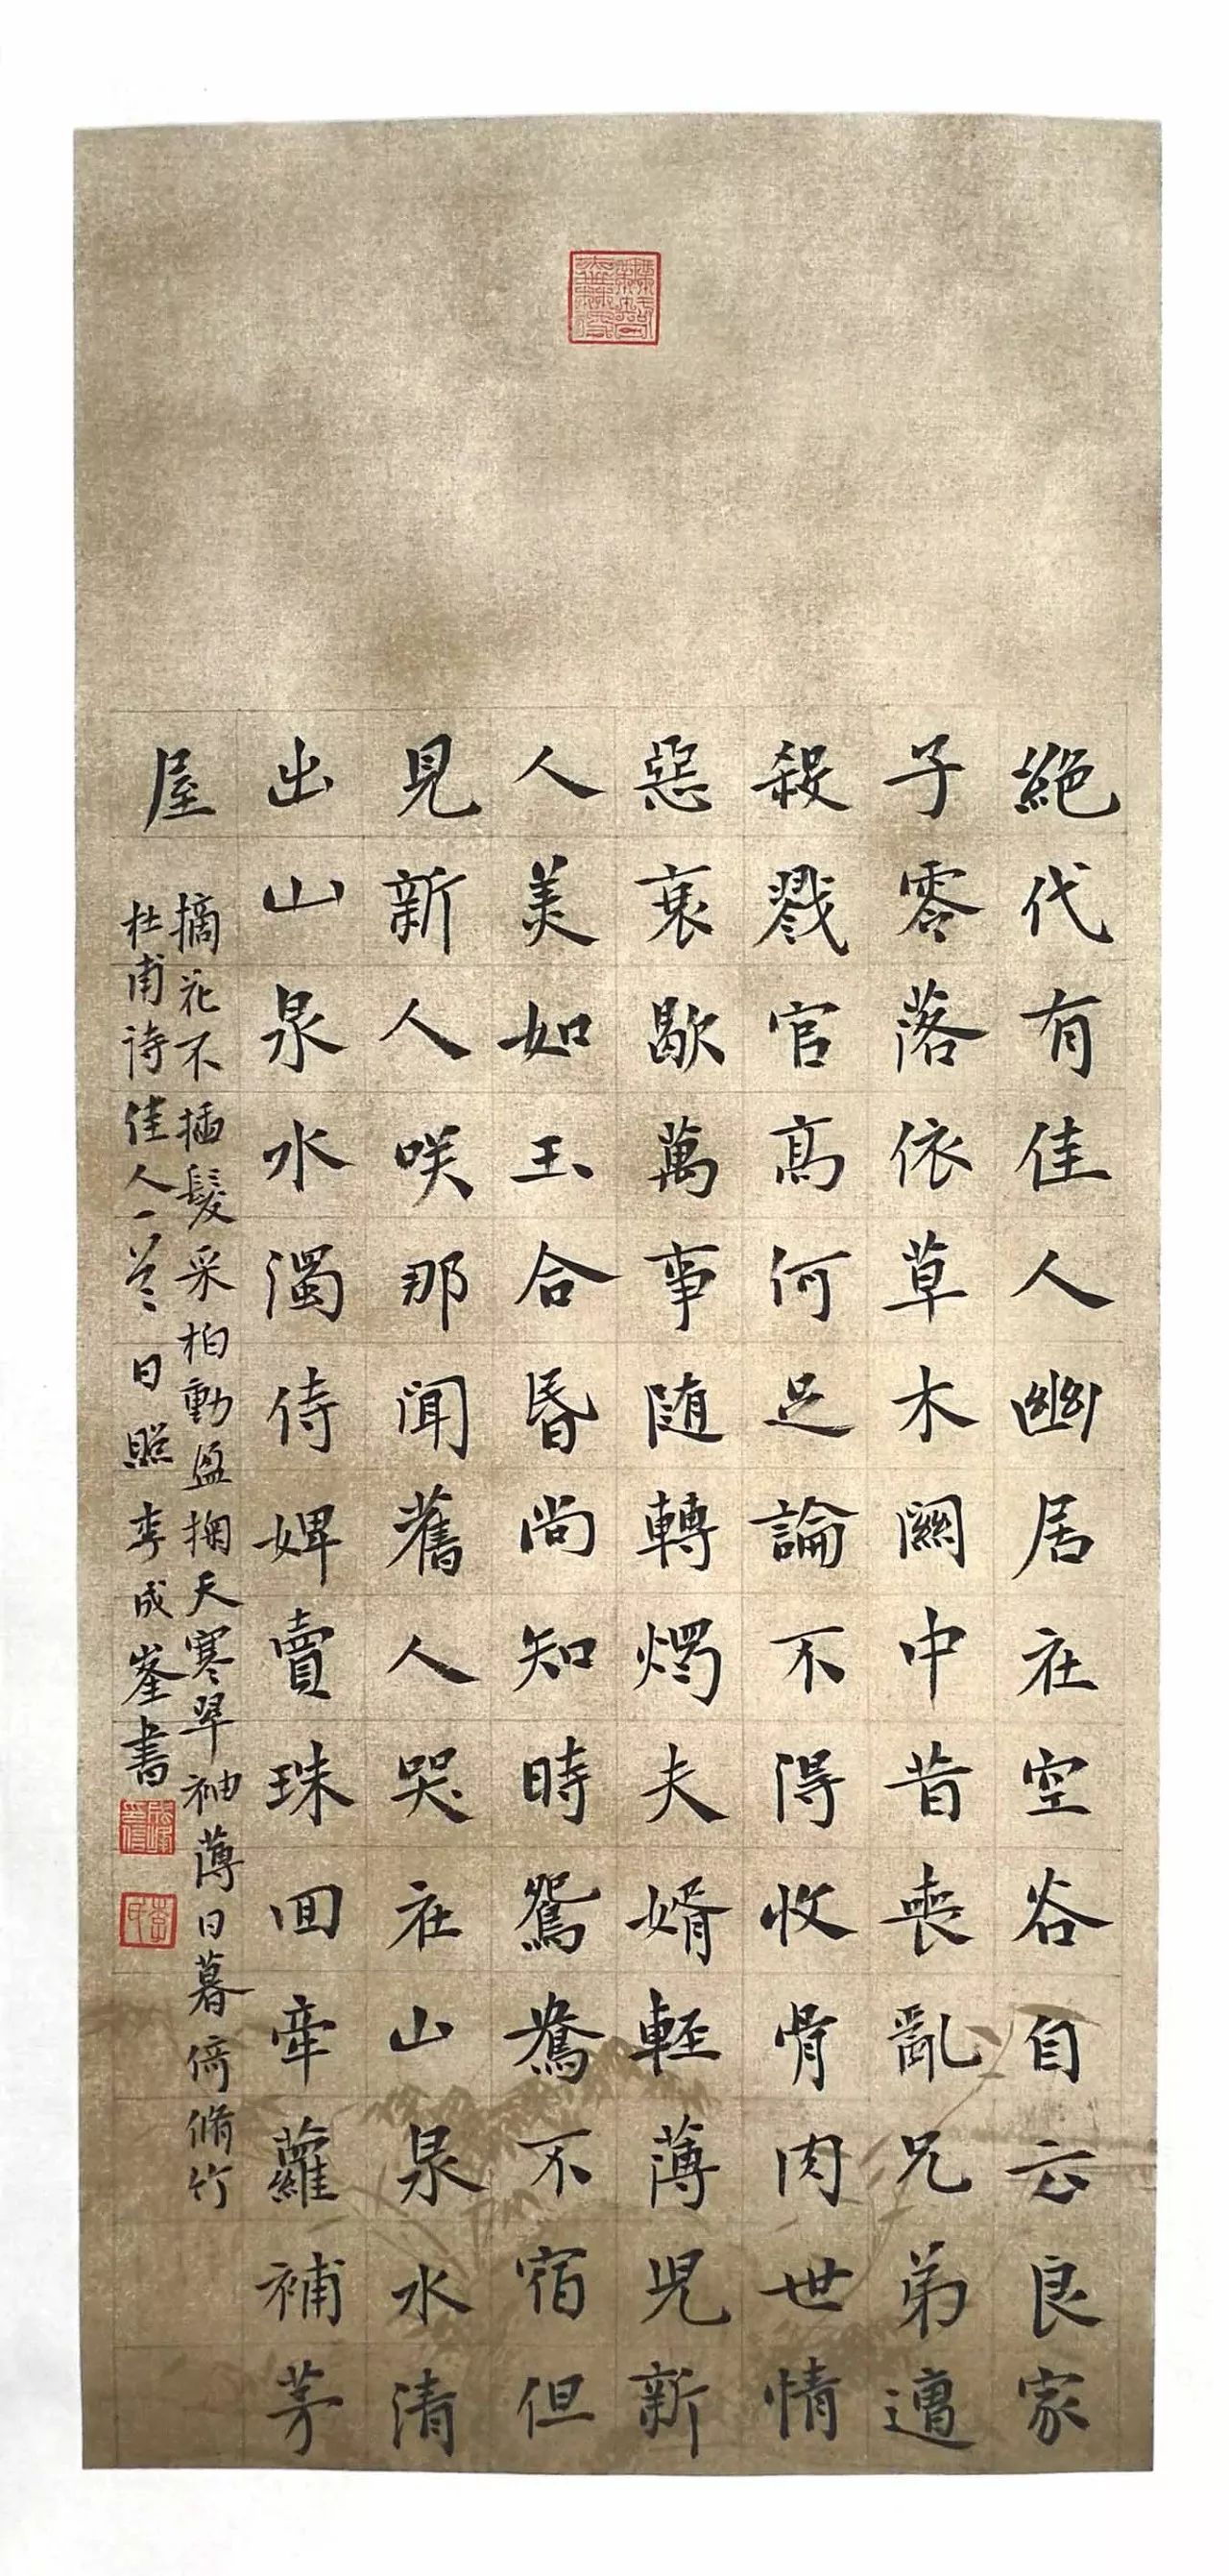 絕代有佳人幽居在空谷自云良家
子零落依草木關中昔喪亂兄弟遭
殺戮官高何足論不得收骨肉世情
惡衰歇萬事随轉燭夫婿輕薄兒新
人美如玉合昏尚知時鴛鴦不宿但
見新人咲那聞舊人哭在山泉水清
出山泉水濁侍婢賣珠回牽蘿補茅
屋
摘花不插髮采柏動盈掬天寒翠袖薄日暮倚脩竹
杜甫诗佳人一首日照李成峯書